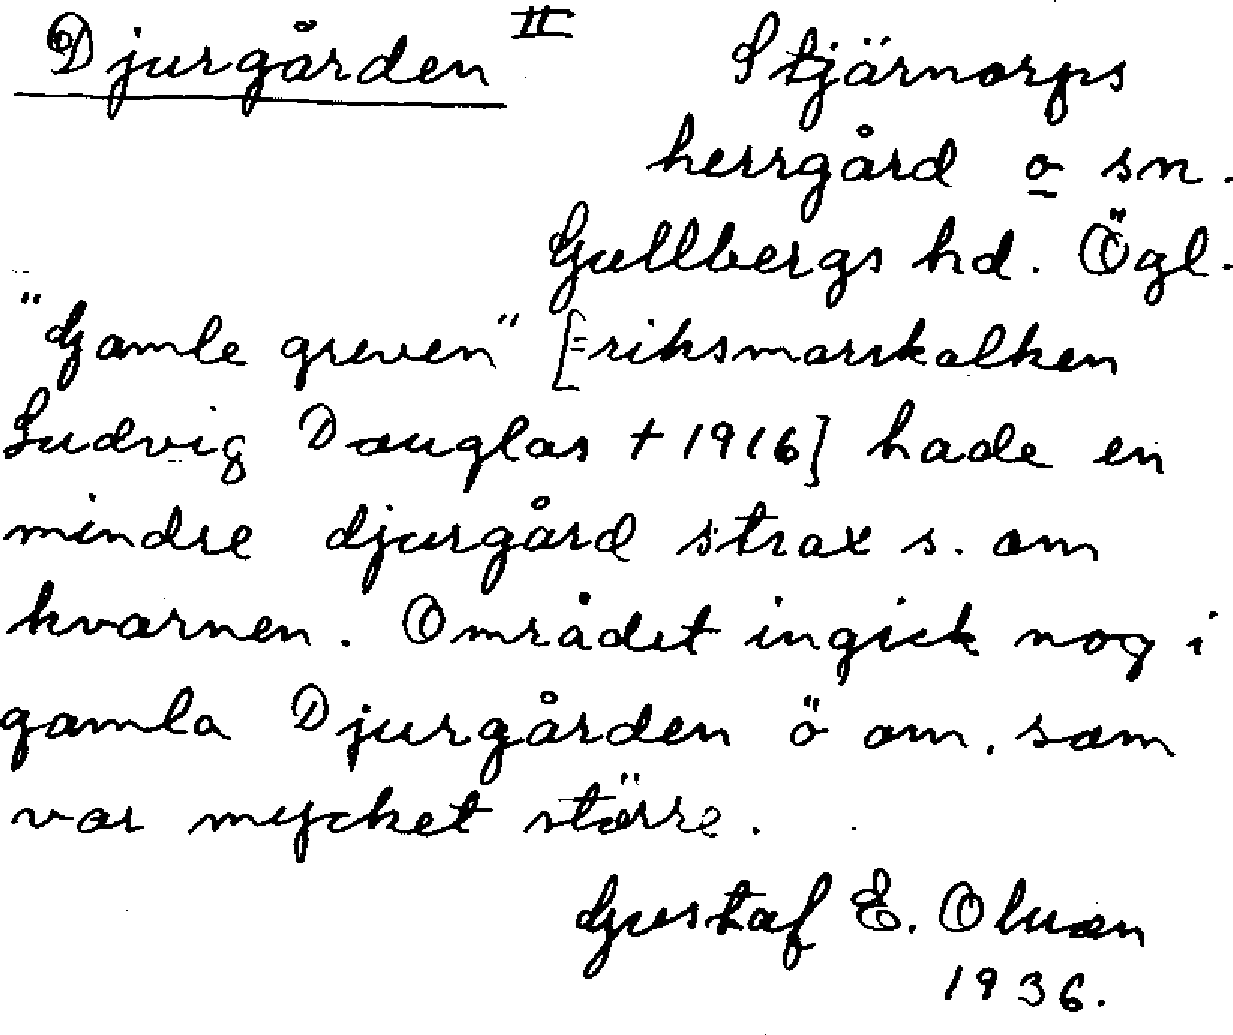 Djurgården II
Stjärnorps
herrgård o sn.
Gullbergs hd. Ögl.
"Gamle greven" [=riksmarskalken
Ludvig Douglas † 1916] hade en
mindre djurgård strax s. om
kvarnen. Området ingick nog i
gamla Djurgården ö om, som
var mycket större.
Gustaf E.
1936.